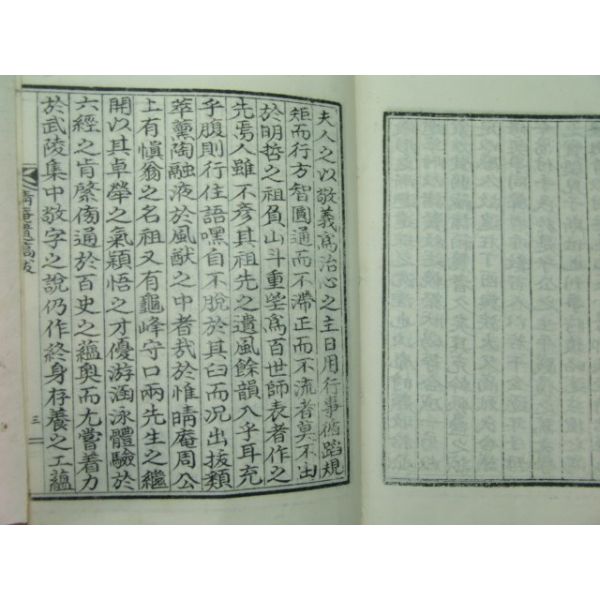 夫人之以敬義爲治心之主日用行事循蹈規
矩而行方智圓通而不滯正而不流者莫不出
於明哲之祖負山斗重望爲百世師表者作之
先焉人雖不彦其祖先之遺風餘韻入乎耳充
乎腹則行住語嘿自不脫於其臼而況出拔類
萃薰陶融液於風猷之中者哉於惟晴庵周公
上有愼翁之名祖又有龜峰守口兩先生之繼
開以其卓犖之氣穎悟之才優游涵泳體驗於
六經之肯綮傍通於百史之蘊奧而尤嘗着力
於武陵集中敬字之說仍作終身存養之工蘊
晴庵遺稿跋
三